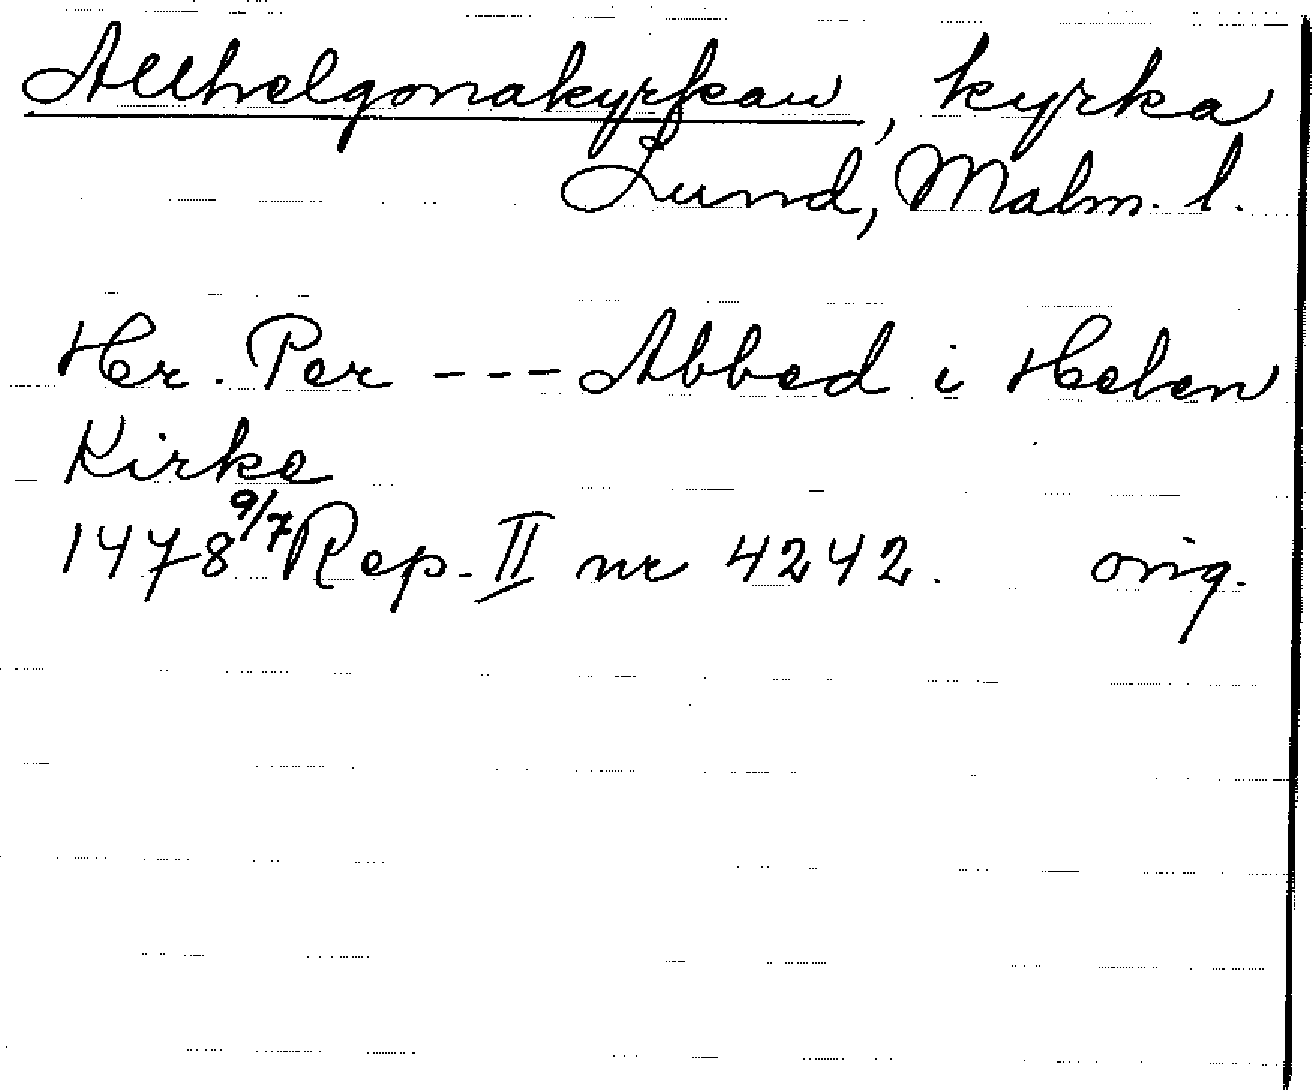 Allhelgonakyrkan, kyrka
Lund, Malm. l.
Her. Per --- Abbed i Helen
Kirke
1478 9/7 Rep. II nr 4242. orig.